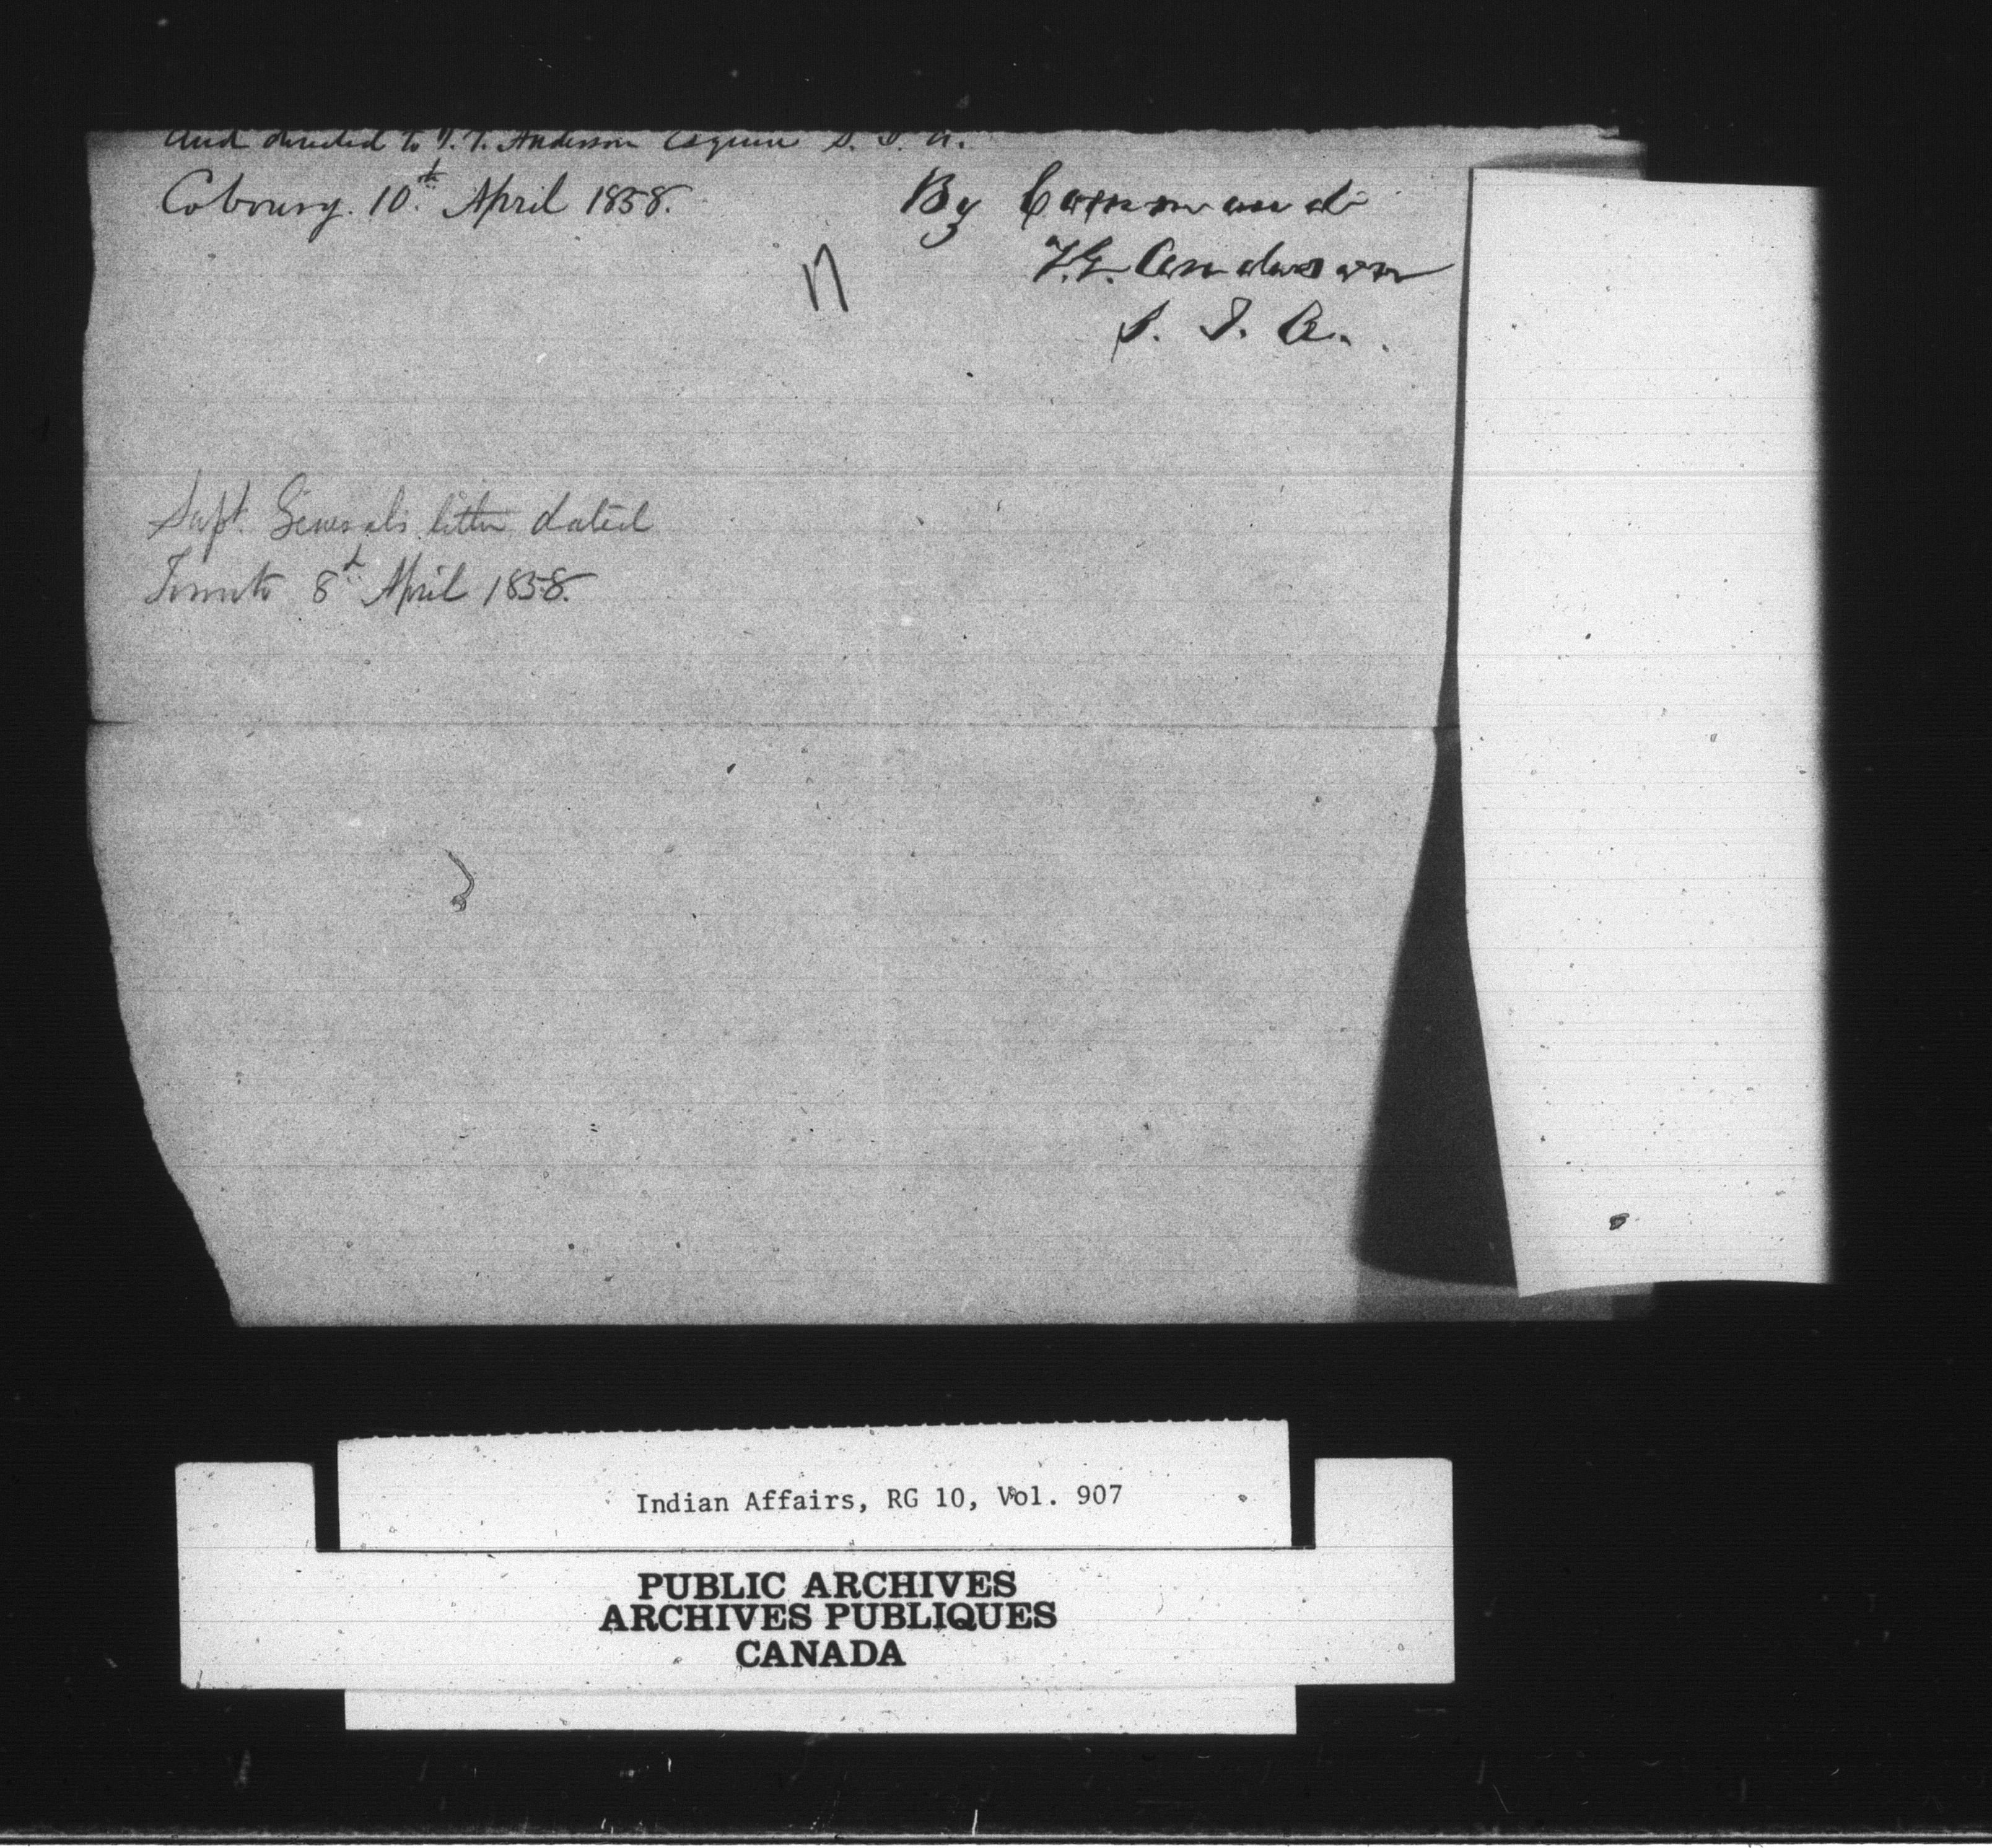 and directed to T. G. Anderson Esquire S. I. A.
Cobourg. 10th April 1858.
By Command
T. G. Anderson
S. I. A.
Supt. Generals letter dated
Toronto 8th April 1858.
Indian Affairs, RG 10, Vol. 907
PUBLIC ARCHIVES
ARCHIVES PUBLIQUES
CANADA